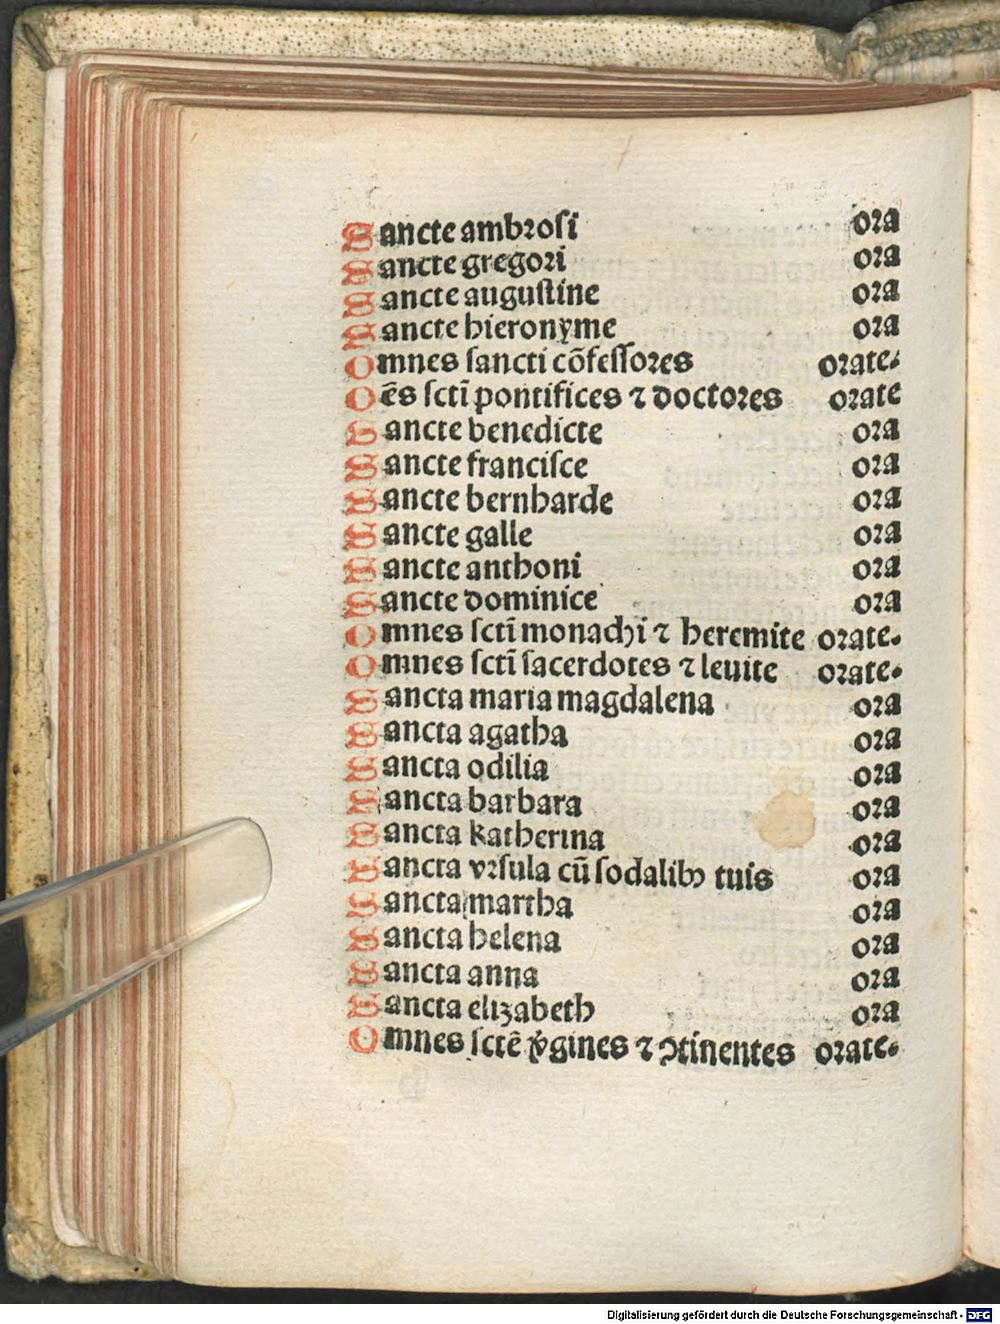 Sancte ambrosi ora
Sancte gregori ora
Sancte augustine ora
Sancte hieronyme ora
Omnes sancti cōfessores orate.
Oēs sctī pontifices ⁊ doctores orate
Sancte benedicte ora
Sancte francisce ora
Sancte bernharde ora
Sancte galle ora
Sancte anthoni ora
Sancte dominice ora
Omnes sctī monachi ⁊ heremite orate.
Omnes sctī sacerdotes ⁊ leuite orate.
Sancta maria magdalena ora
Sancta agatha ora
Sancta odilia ora
Sancta barbara ora
Sancta katherina ora
Sancta vrsula cū sodalibꝫ tuis ora
Sancta martha ora
Sancta helena ora
Sancta anna ora
Sancta elizabeth ora
Omnes sctē v̾gines ⁊ ꝯtinentes orate.
Digitalisierung gefördert durch die Deutsche Forschungsgemeinschaft - DFG